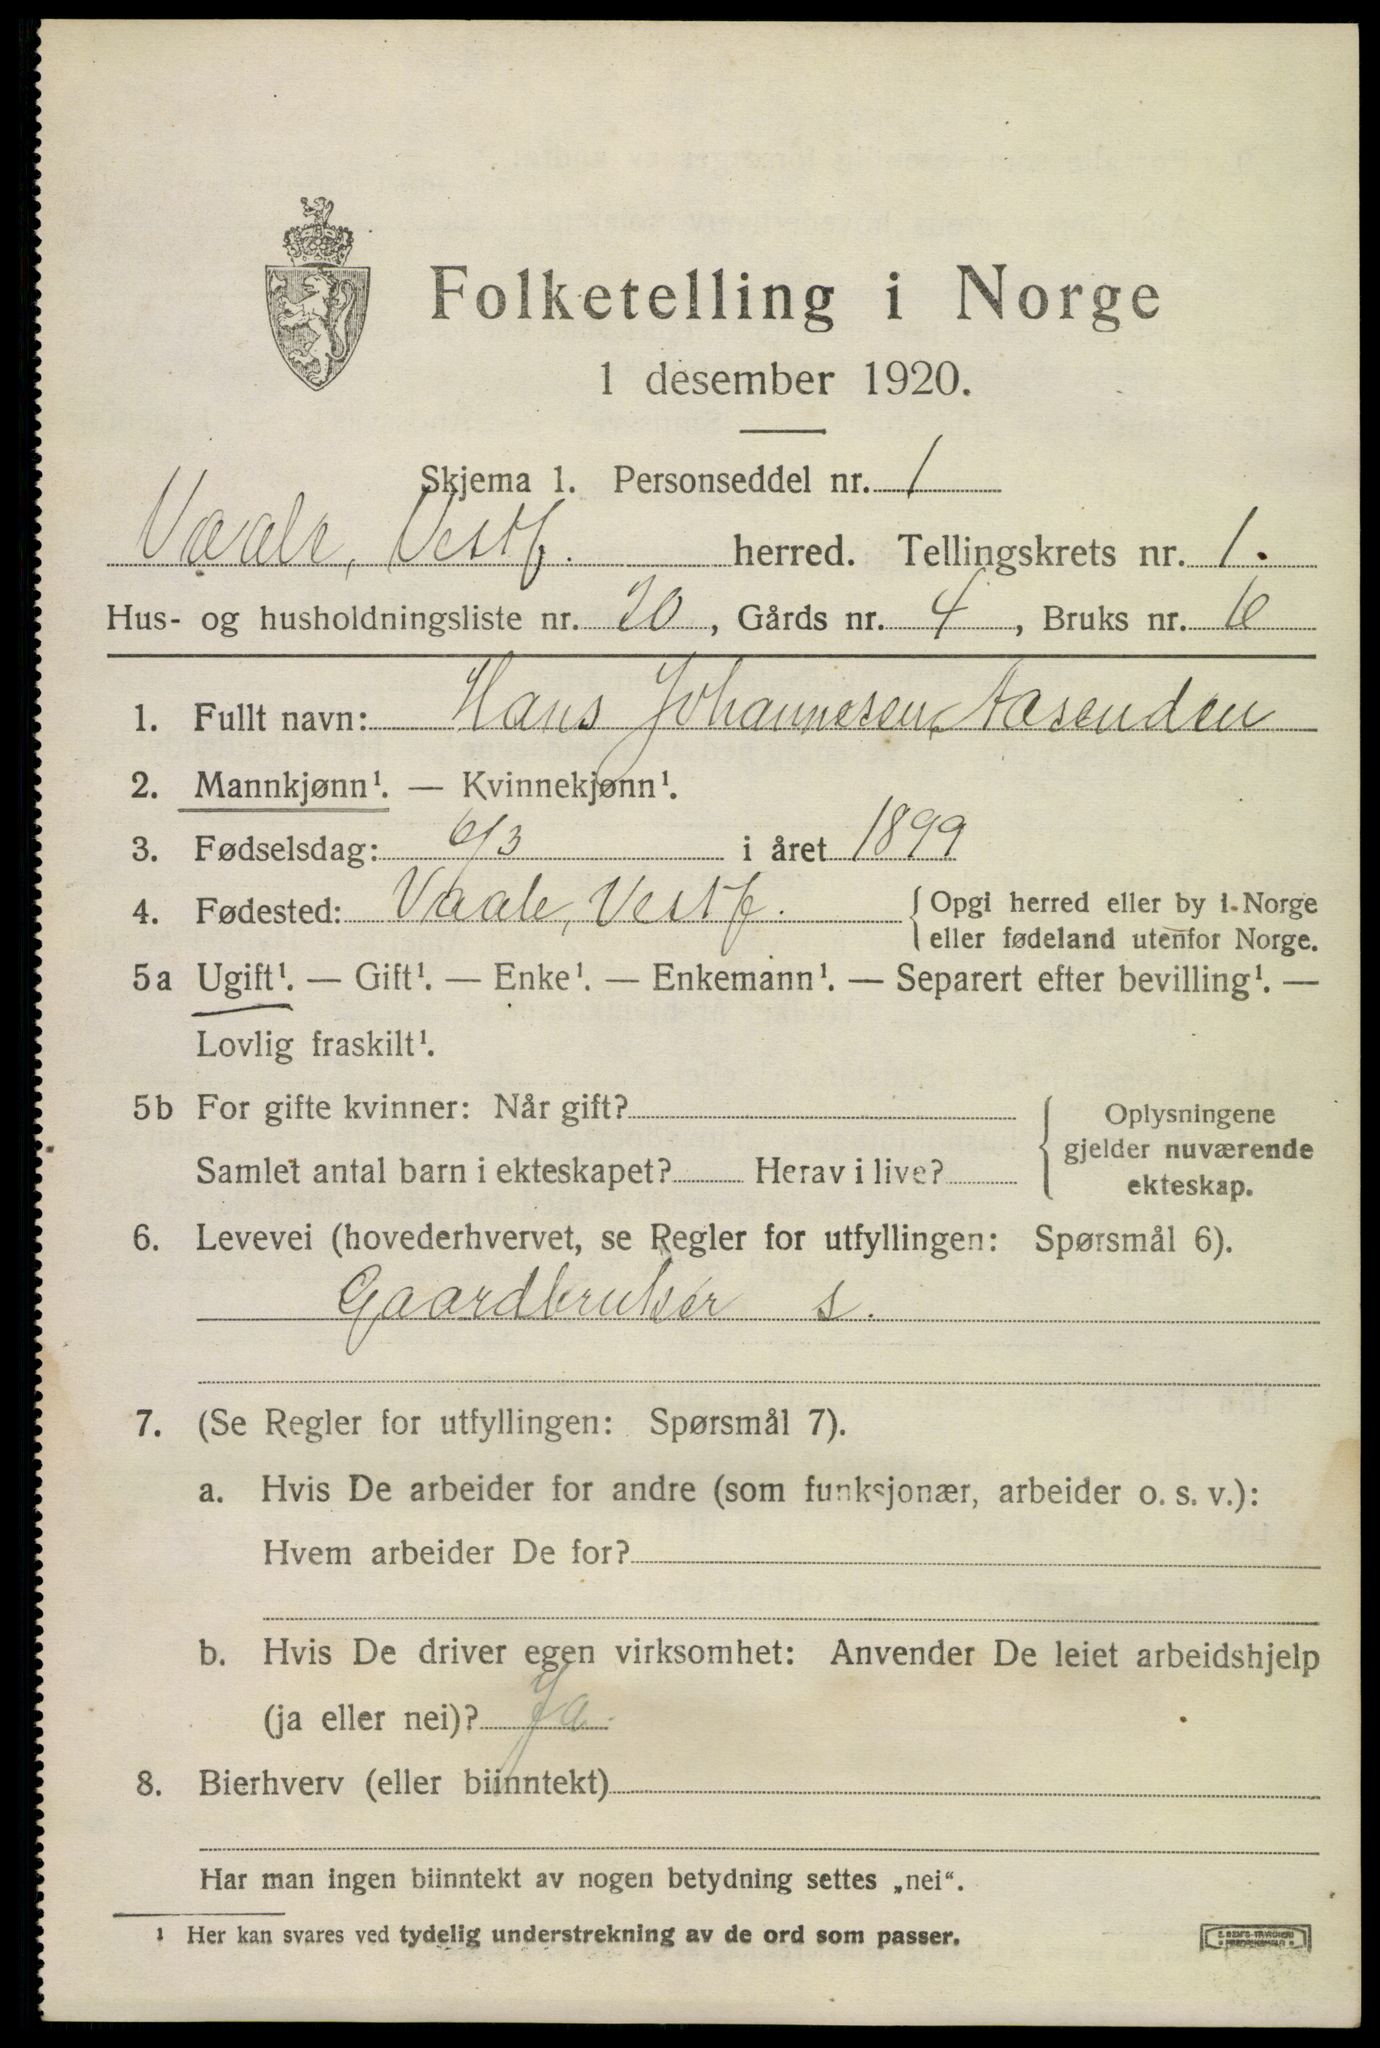 Folketelling i Norge
1 desember 1920.
Skjema 1. Personseddel nr. 1
Vaale, Vestf. herred. Tellingskrets nr. 1.
Hus- og husholdningsliste nr. 20, Gårds nr. 4, Bruks nr. 6
1. Fullt navn: Hans Johannesen, Aasenden
2. Mannkjønn¹. — Kvinnekjønn¹.
3. Fødselsdag: 6/3 i året 1899
4. Fødested: Vaale, Vestf. { Opgi herred eller by i Norge
eller fødeland utenfor Norge.
5a Ugift¹. — Gift¹. — Enke¹. — Enkemann¹. — Separert efter bevilling¹. —
Lovlig fraskilt¹.
5b For gifte kvinner: Når gift? { Oplysningene
gjelder nuværende
Samlet antal barn i ekteskapet? Herav i live?
ekteskap.
6. Levevei (hovederhvervet, se Regler for utfyllingen: Spørsmål 6).
Gaardbruker s.
7. (Se Regler for utfyllingen: Spørsmål 7).
a. Hvis De arbeider for andre (som funksjonær, arbeider o. s. v.):
Hvem arbeider De for?
b. Hvis De driver egen virksomhet: Anvender De leiet arbeidshjelp
(ja eller nei)? Ja.
8. Bierhverv (eller biinntekt)
Har man ingen biinntekt av nogen betydning settes „nei“.
¹ Her kan svares ved tydelig understrekning av de ord som passer.